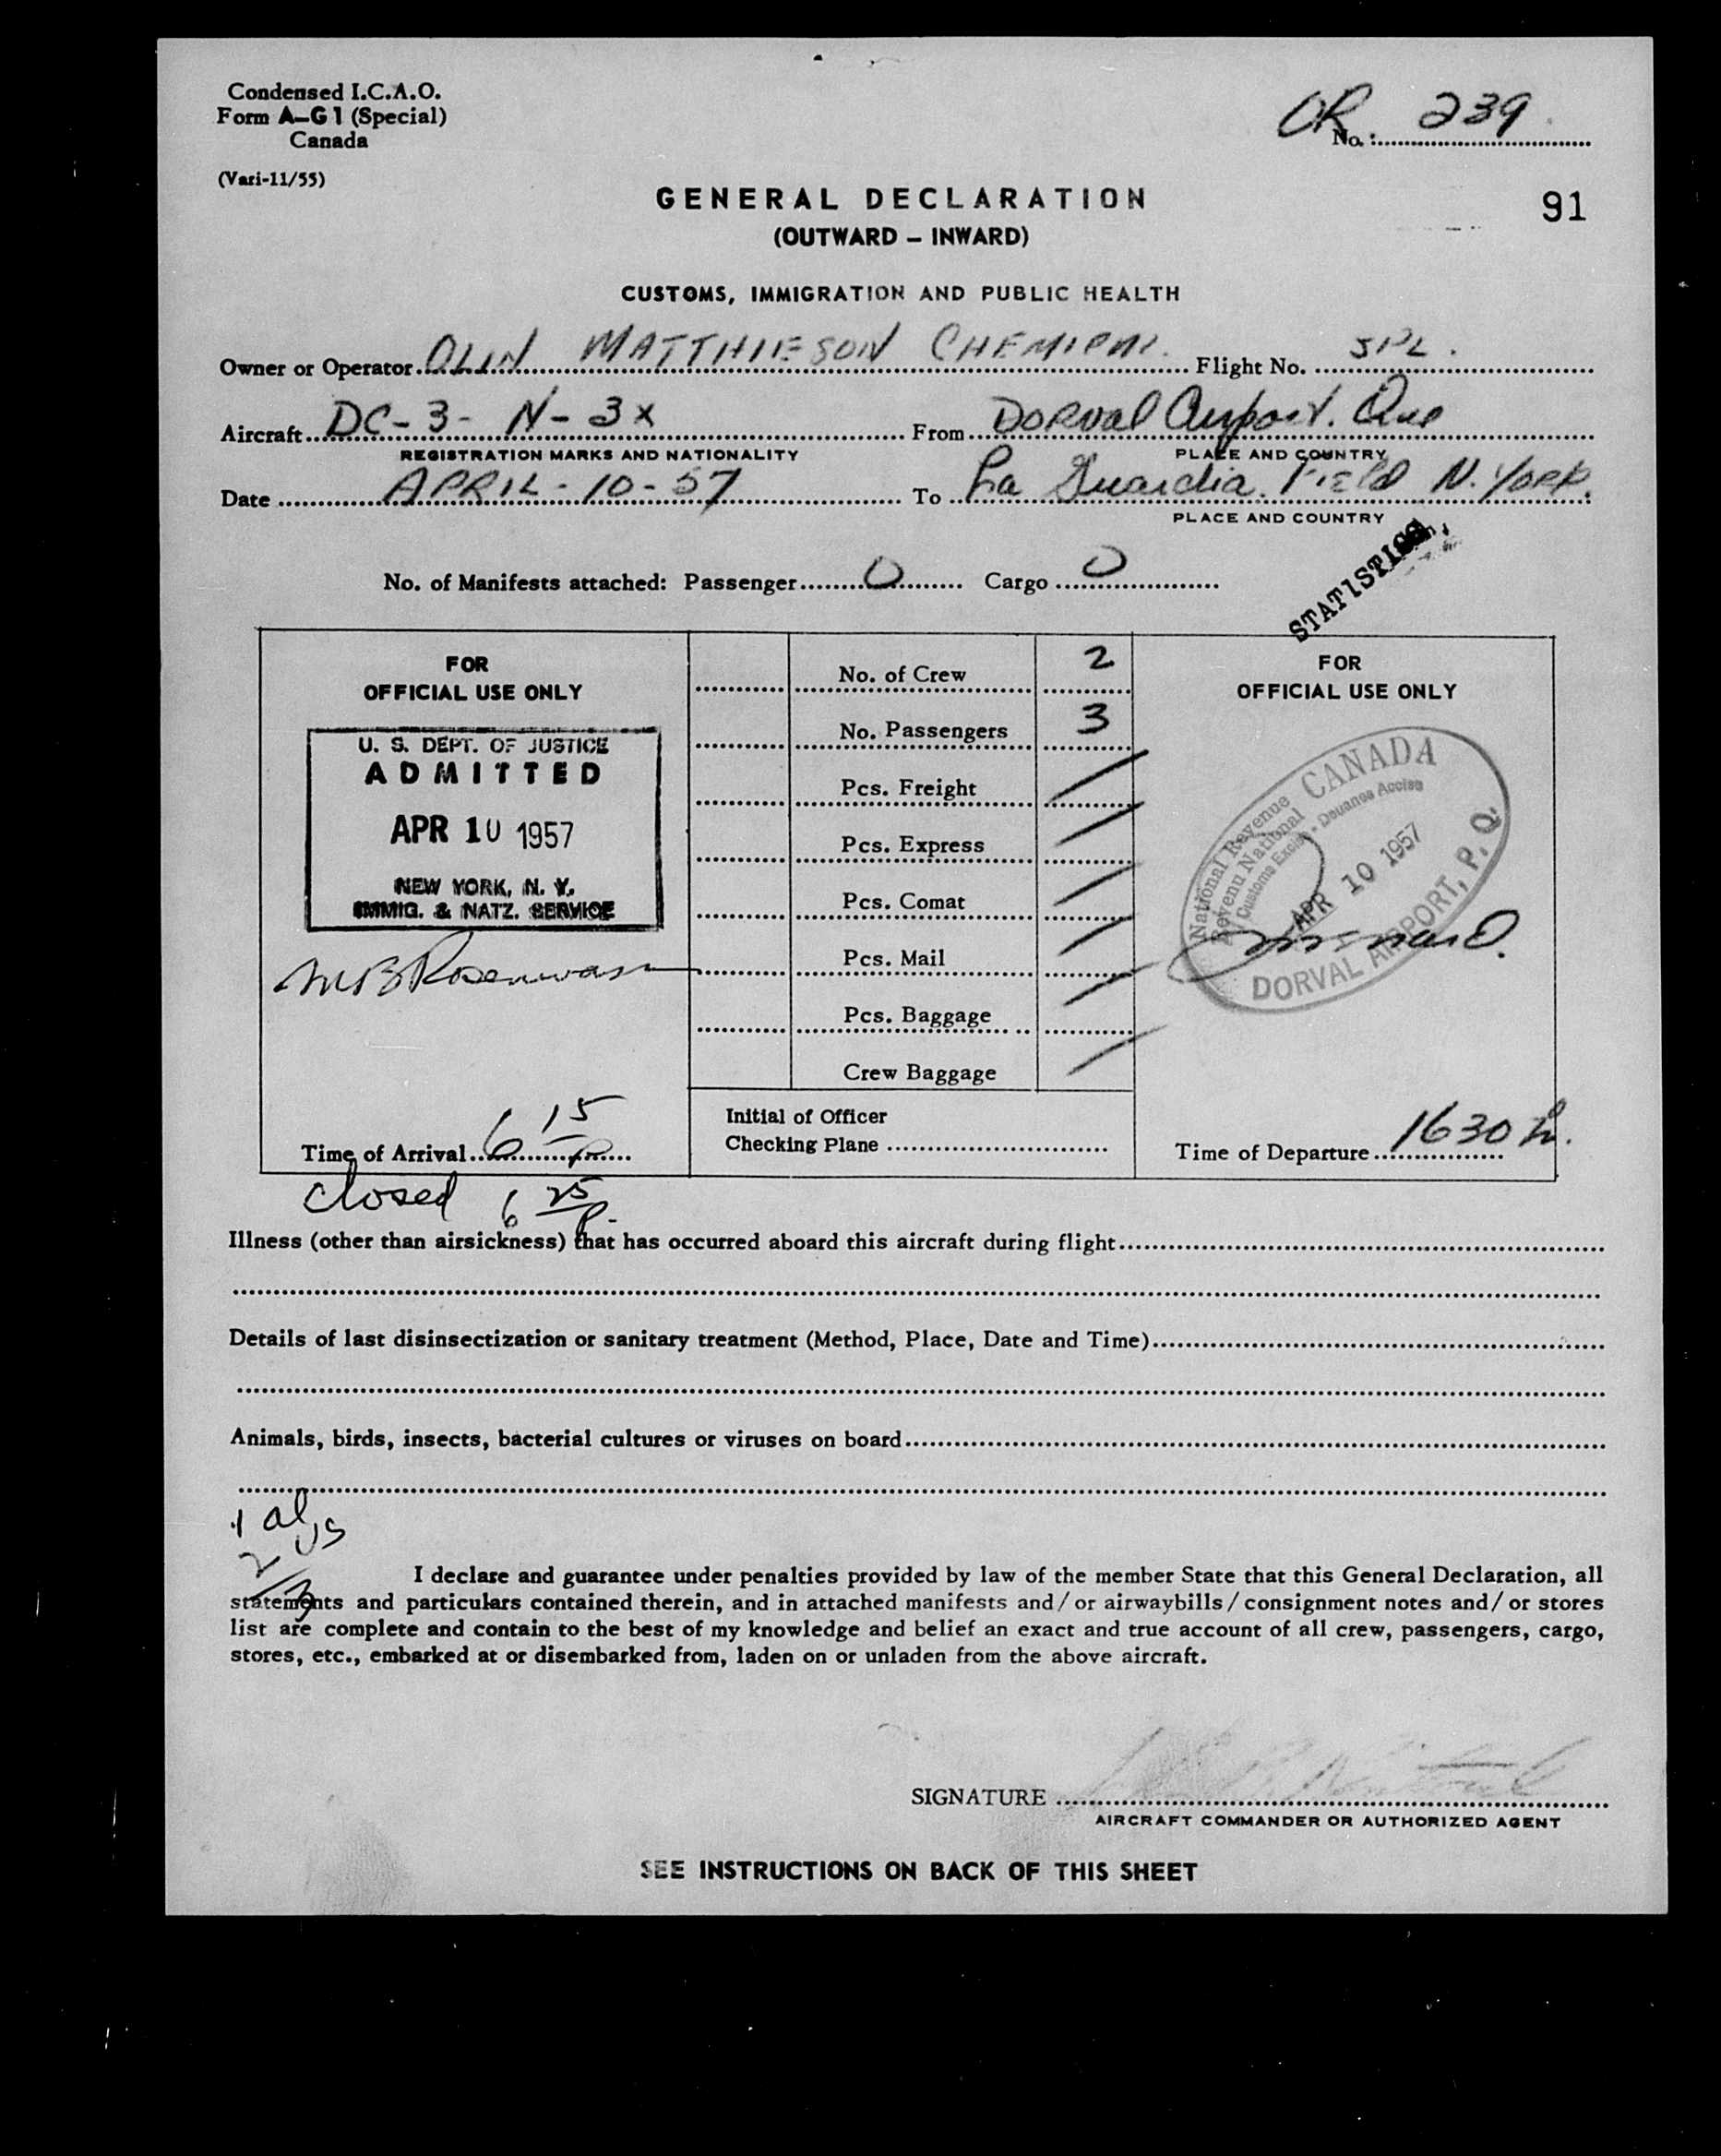 Condensed I.C.A.O.
Form A–G1 (Special)
Canada
(Vari-11/55)
OR 239
No. :
GENERAL DECLARATION
91
(OUTWARD – INWARD)
CUSTOMS, IMMIGRATION AND PUBLIC HEALTH
Owner or Operator OLIN MATTHIESON CHEMICAL. Flight No. SPL.
Aircraft DC-3- N-3X From DORVAL Airport. Que
REGISTRATION MARKS AND NATIONALITY PLACE AND COUNTRY
Date APRIL-10-57 To La Guardia. Field N. YORK.
PLACE AND COUNTRY
STATISTICS
No. of Manifests attached: Passenger 0 Cargo 0
FOR
OFFICIAL USE ONLY
U. S. DEPT. OF JUSTICE
ADMITTED
APR 10 1957
NEW YORK, N. Y.
IMMIG. & NATZ. SERVICE
Time of Arrival 6 15 P
closed 6 25 P.
No. of Crew 2
No. Passengers 3
Pcs. Freight
Pcs. Express
Pcs. Comat
Pcs. Mail
Pcs. Baggage
Crew Baggage
Initial of Officer
Checking Plane
FOR
OFFICIAL USE ONLY
CANADA
National Revenue
Revenu National
Customs Excise - Douanes Accise
APR 10 1957
DORVAL AIRPORT, P. Q.
Time of Departure 1630 h.
Illness (other than airsickness) that has occurred aboard this aircraft during flight
Details of last disinsectization or sanitary treatment (Method, Place, Date and Time)
Animals, birds, insects, bacterial cultures or viruses on board
I declare and guarantee under penalties provided by law of the member State that this General Declaration, all
statements and particulars contained therein, and in attached manifests and/or airwaybills/consignment notes and/or stores
list are complete and contain to the best of my knowledge and belief an exact and true account of all crew, passengers, cargo,
stores, etc., embarked at or disembarked from, laden on or unladen from the above aircraft.
SIGNATURE
AIRCRAFT COMMANDER OR AUTHORIZED AGENT
SEE INSTRUCTIONS ON BACK OF THIS SHEET